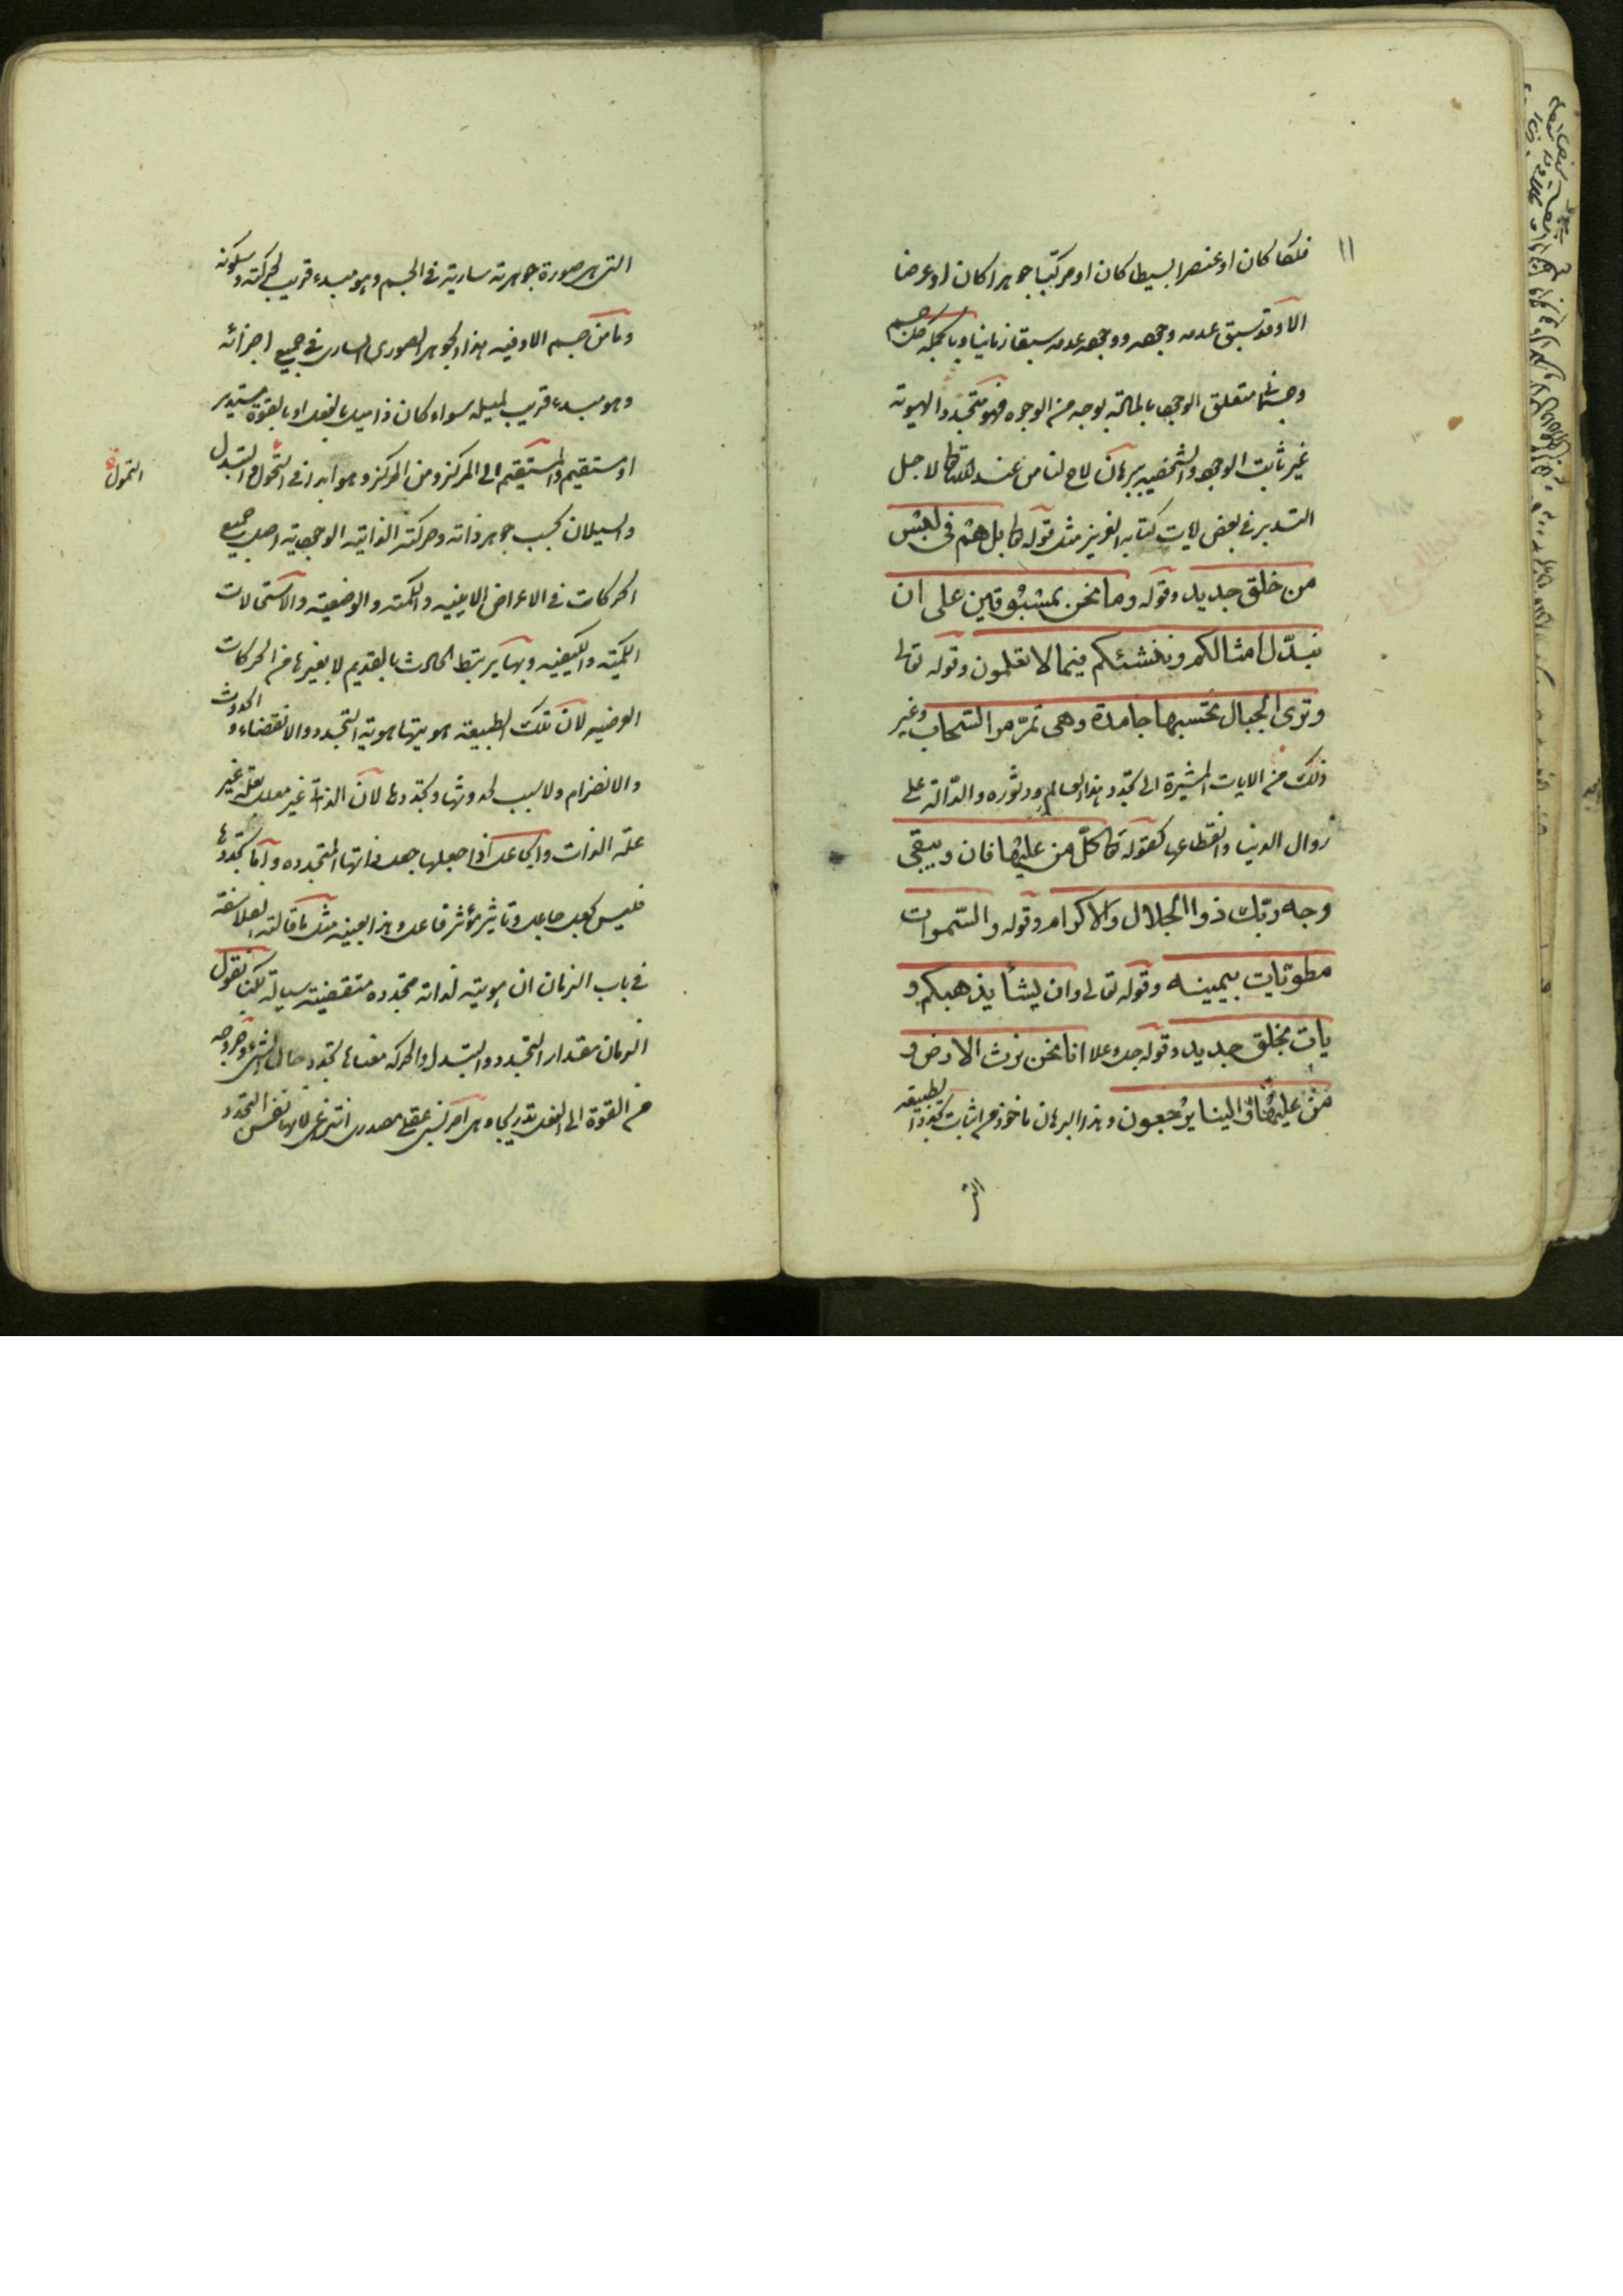 ١١
فلكا كان او عنصرا بسيطا كان او مركبا جوهرا كان او عرضا
الا وقد سبق عدمه وجوده ووجوده عدمه سبقا زمانيا وبالجملة كل جسم
وجسماني متعلق الوجود بالمادة بوجه من الوجوه فهو متجدد الهوية
غير ثابت الوجود والشخصية ببرهان لاح لنا من عند الله تعالى لاجل
التدبر في بعض ايات كتابه العزيز مثل قوله تعالى بل هم في لبس
من خلق جديد وقوله وما نحن بمسبوقين على ان
نبدّل امثالكم وننشئكم فيما لا تعلمون وقوله تعالى
وترى الجبال تحسبها جامدة وهي تمرّ مر السّحاب وغير
ذلك من الايات المشيرة الى تجدد هذا العالم ودثوره والدّالة على
زوال الدنيا وانقطاعها كقوله تعالى كلّ من عليها فان ويبقى
وجه ربّك ذو الجلال والاكرام وقوله والسّموات
مطويّات بيمينه وقوله تعالى وان يشأ يذهبكم و
يات بخلق جديد وقوله جل وعلا انا نحن نرث الارض و
من عليها والينا يرجعون وهذا البرهان ماخوذ من اثبات تجدد الطبيعة
التى
التى هي صورة جوهرية سارية في الجسم وهو مبدء قريب لحركته وسكونه
وما من جسم الا وفيه هذا الجوهر الصوري الساري في جميع اجزائه
وهو مبدء قريب لميله سواء كان ذا ميل بالفعل او بالقوة مستدير
او مستقيم والمستقيم الى المركز ومن المركز وهو ابدا في التحول والتبدل
التحول
والسيلان بحسب جوهر ذاته وحركته الذاتية الوجودية اصل جميع
الحركات في الاعراض الاينية والكمية والوضعية والاستحالات
الكمية والكيفية وبها يرتبط الحادث بالقديم لا بغيرها من الحركات
العرضية لان تلك الطبيعة هويتها هوية التجدد والانقضاء والحدوث
والانصرام ولا سبب لحدوثها وتجددها لان الذاتي غير معلل بعلة غير
علّة الذات والجاعل اذا جعلها جعل ذاتها المتجددة واما تجددها
فليس بجعل جاعل وتاثير مؤثر فاعل وهذا بعينه مثل ما قالته الفلاسفة
في باب الزمان ان هويته لذاته متجددة متقضية سيالة لكنا نقول
الزمان مقدار التجدد والتبدل والحركة معناها تجدد حال الشيء وخروجه
من القوة الى الفعل تدريجا وهي امر نسبي عقلي مصدري انتزاعي لانها نفس التجدد